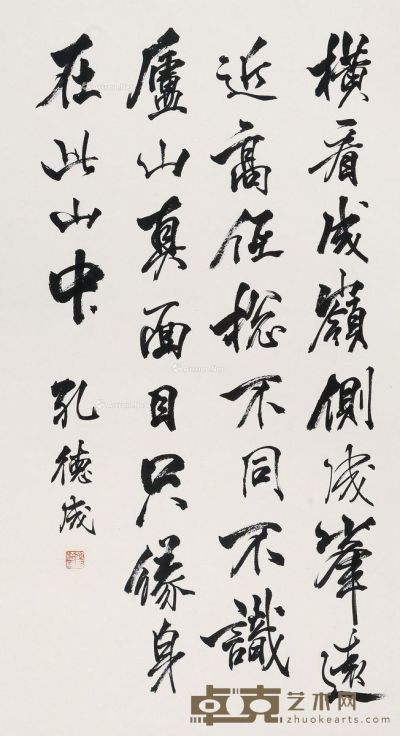 橫看成嶺側成峯遠
近高低總不同不識
廬山真面目只緣身
在此山中 孔德成
卓克艺术网
zhuokearts.com